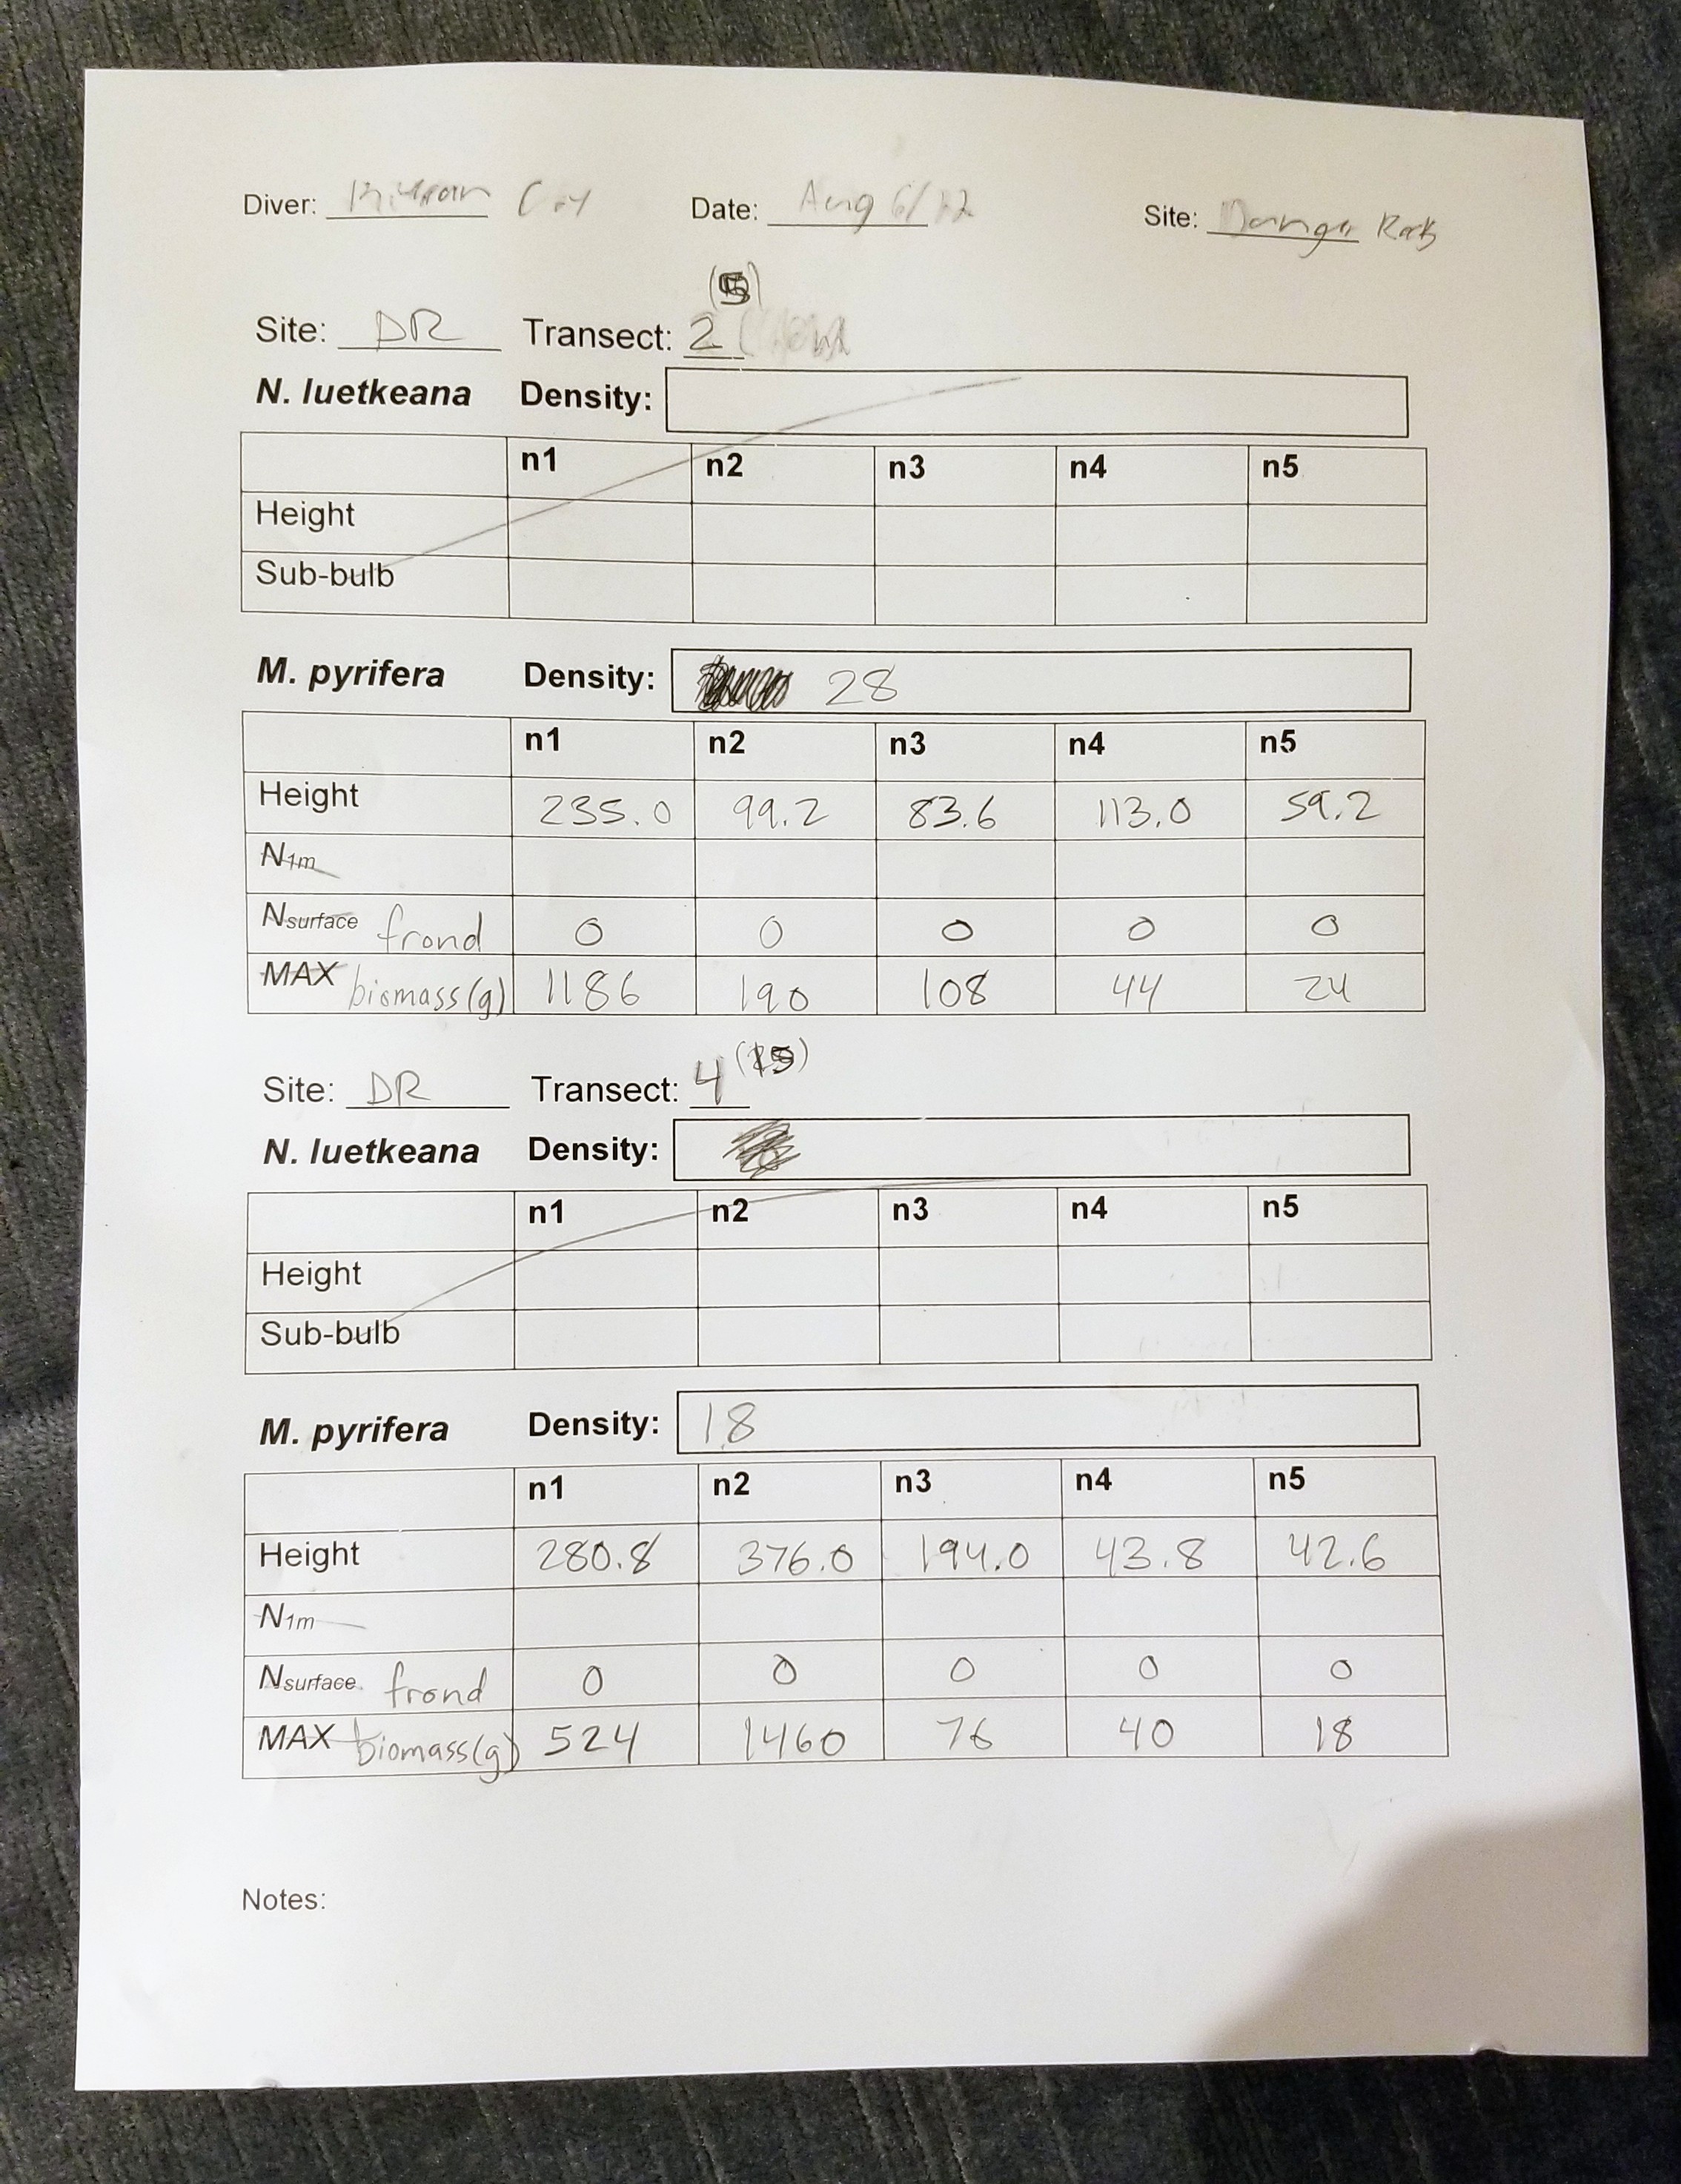 Diver: Date: Aug 6/22 Site: Danger Rocks
(5)
Site: DR Transect: 2
N. luetkeana Density:
n1 n2 n3 n4 n5
Height
Sub-bulb
M. pyrifera Density: 28
n1 n2 n3 n4 n5
Height 235.0 99.2 83.6 113.0 59.2
N1m
Nsurface frond 0 0 0 0 0
MAX biomass(g) 1186 190 108 44 24
Site: DR Transect: 4 (15)
N. luetkeana Density:
n1 n2 n3 n4 n5
Height
Sub-bulb
M. pyrifera Density: 18
n1 n2 n3 n4 n5
Height 280.8 376.0 194.0 43.8 42.6
N1m
Nsurface frond 0 0 0 0 0
MAX biomass(g) 524 1460 76 40 18
Notes: